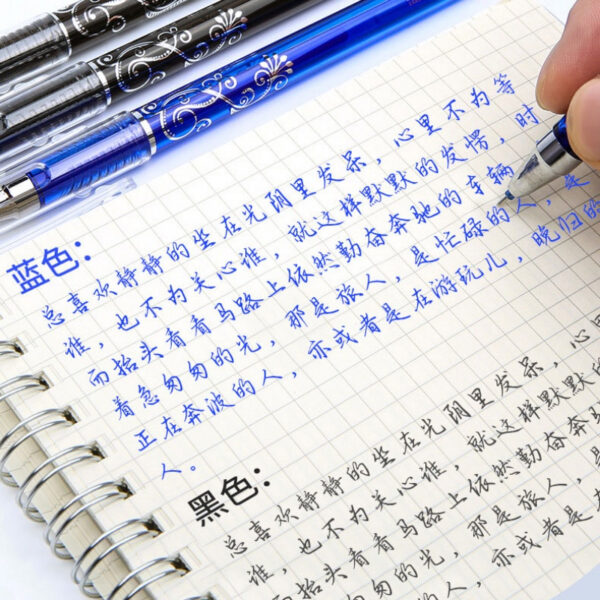 蓝色：
总喜欢静静的坐在光阴里发呆，心里不为等
谁，也不为关心谁，就这样默默的发愣，时
而抬头看看马路上依然勤奋奔驰的车辆
着急匆匆的光，那是旅人，是忙碌的人，是
正在奔波的人，亦或者是在游玩儿，晚归的
人。
黑色：
总喜欢静静的坐在光阴里发呆，心
谁，也不为关心谁，就这样默默的
而抬头看看马路上依然勤奋奔
着急匆匆的光，那是旅人，是
的人，亦或者是在